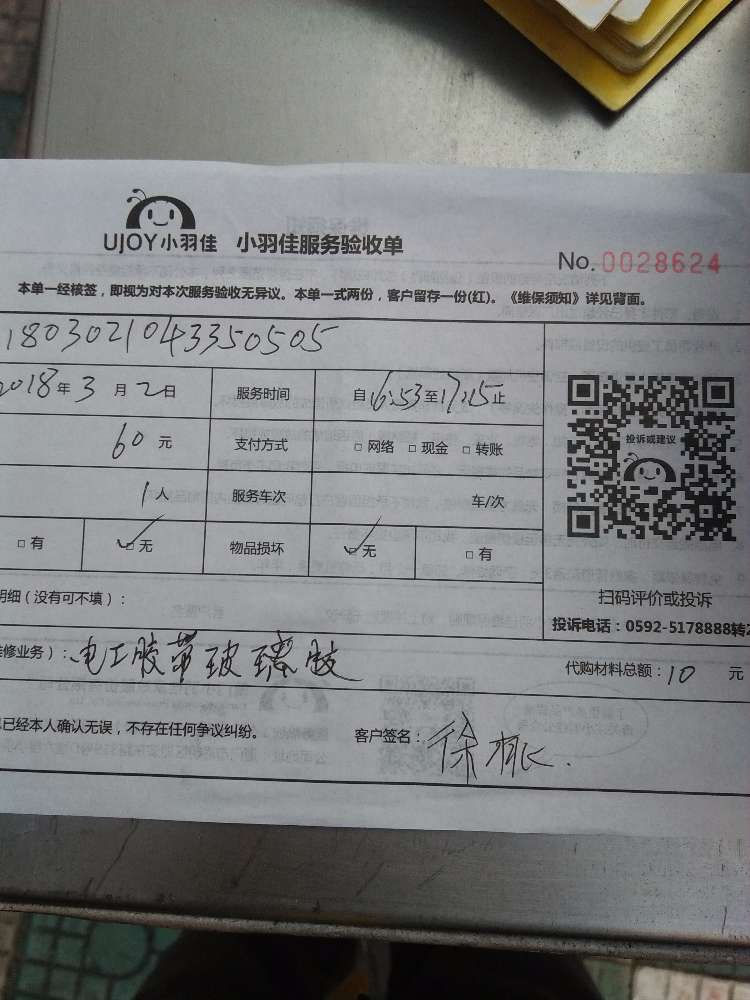 UJOY小羽佳 小羽佳服务验收单
No. 0028624
本单一经核签，即视为对本次服务验收无异议。本单一式两份，客户留存一份(红)。《维保须知》详见背面。
1803021043350505
2018年3月2日 服务时间 自16:53至17:15止
60元 支付方式 □网络 □现金 □转账
投诉或建议
1人 服务车次 车/次
□有 ✓□无 物品损坏 ✓□无 □有
扫码评价或投诉
明细（没有可不填）：
投诉电话：0592-5178888转2
维修业务）：电工胶带玻璃胶 代购材料总额：10元
已经本人确认无误，不存在任何争议纠纷。 客户签名：徐